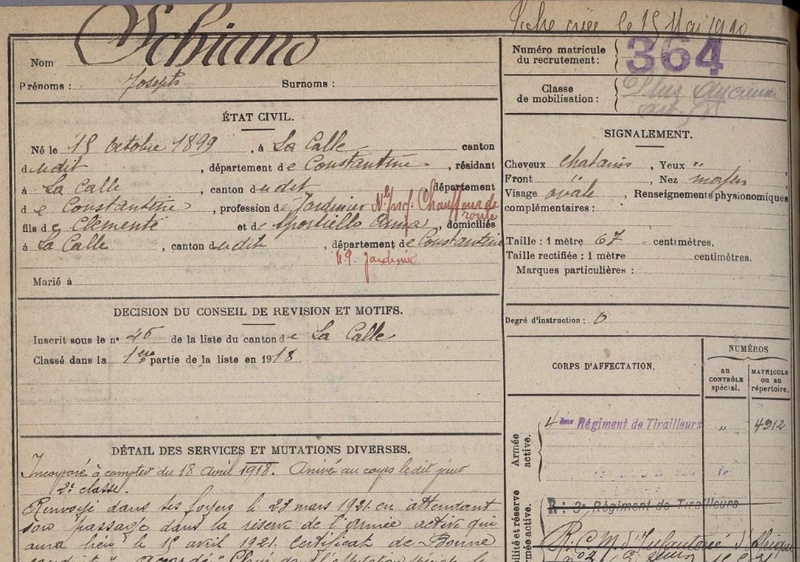 Fiche créée le 15 Mai 1920
Nom Schiano
Prénoms : Joseph Surnoms :
ÉTAT CIVIL.
Né le 15 Octobre 1899 , à La Calle canton
dudit , département de Constantine , résidant
à La Calle , canton dudit , département
de Constantine , profession de Jardinier Nlle prof. Chauffeur de
route
fils de Clémente et de Sportiello Anna , domiciliés
à La Calle , canton dudit , département de Constantine
N.P. Jardinier
Marié à
DECISION DU CONSEIL DE REVISION ET MOTIFS.
Inscrit sous le n° 46 de la liste du canton de La Calle
Classé dans la 1ère partie de la liste en 1918.
DÉTAIL DES SERVICES ET MUTATIONS DIVERSES.
Incorporé à compter du 18 avril 1918. Arrivé au corps ledit jour
2e classe.
Renvoyé dans ses foyers le 23 mars 1921 en attendant
son passage dans la réserve de l'Armée active qui
aura lieu le 15 avril 1921. Certificat de Bonne
Numéro matricule
du recrutement : 364
Classe
de mobilisation : Plus ancienne
SIGNALEMENT.
Cheveux chatains , Yeux "
Front " , Nez moyen
Visage ovale , Renseignements physionomiques
complémentaires :
Taille : 1 mètre 67 centimètres.
Taille rectifiée : 1 mètre centimètres.
Marques particulières :
Degré d'instruction : 0
CORPS D'AFFECTATION.
NUMÉROS
AU
CONTRÔLE
spécial.
MATRICULE
ou au
répertoire.
Armée
active.
4ème Régiment de Tirailleurs " 4912
R : 3e Régiment de Tirailleurs
R.C.M. d'Infanterie d'Afrique